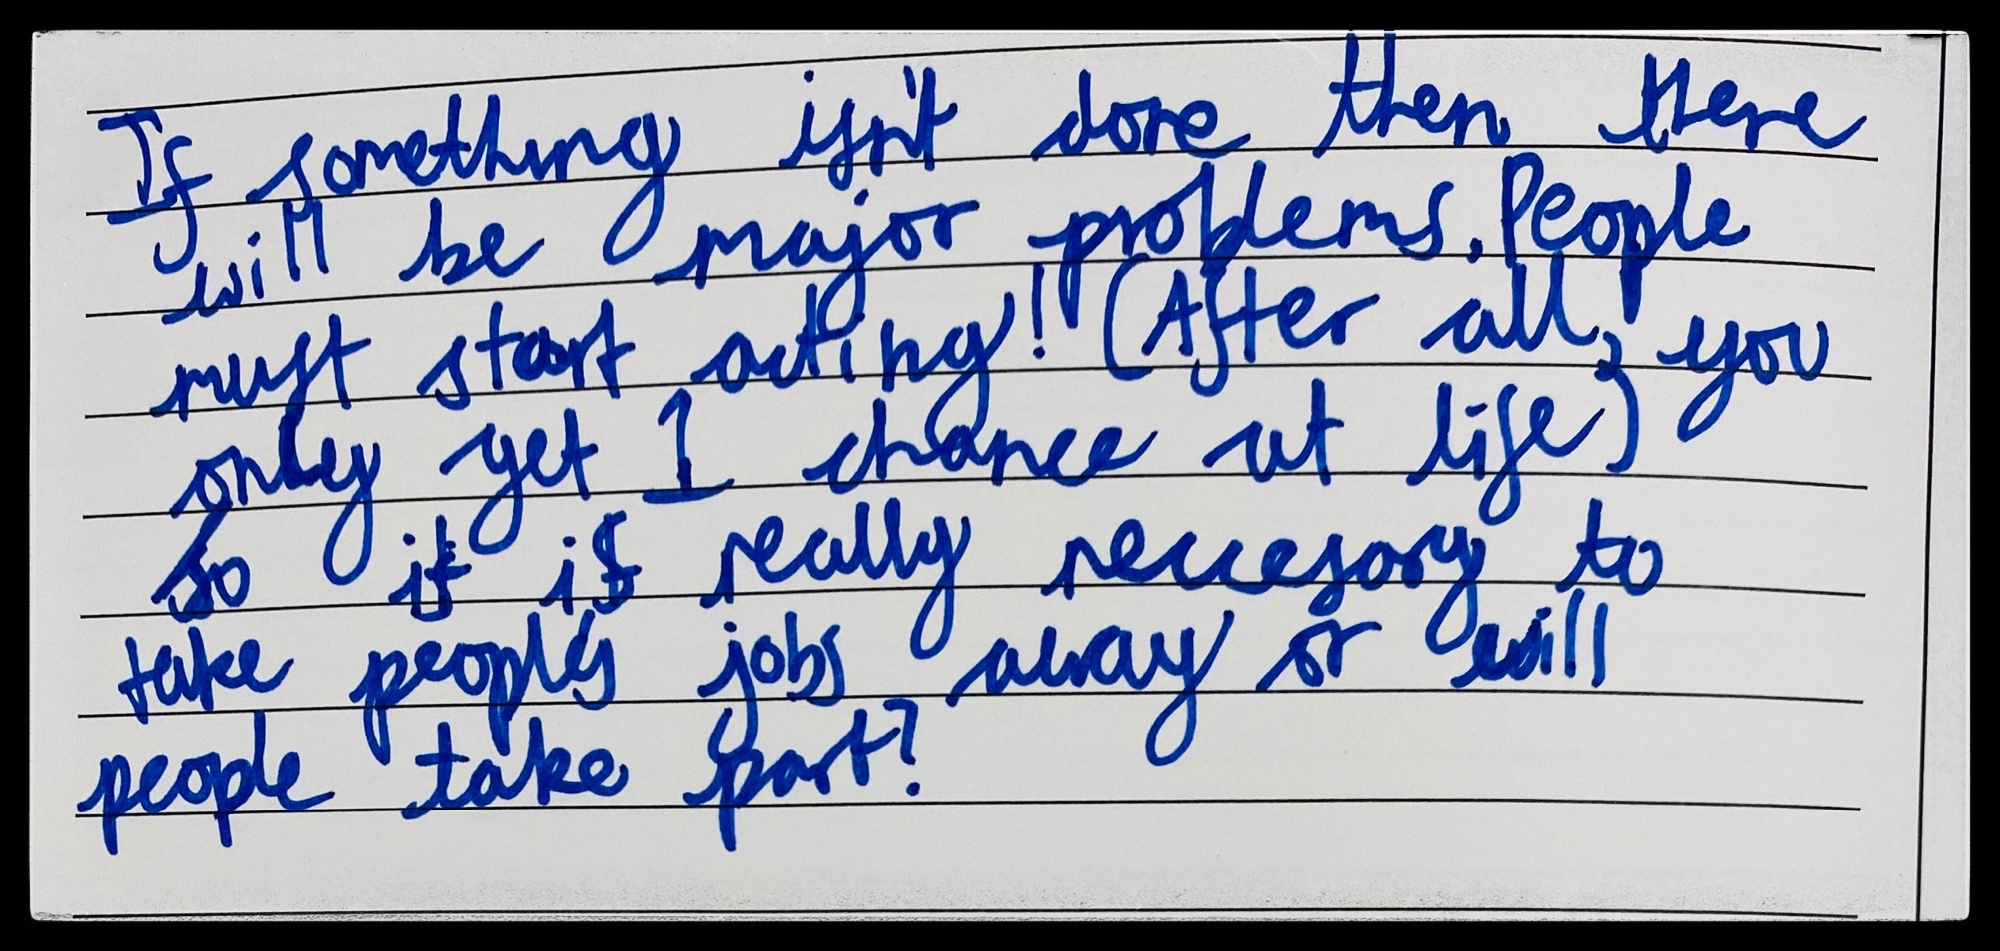 If something isn't done then there
will be major problems. People
must start acting! (After all, you
only get 1 chance at life)
So is it really neccesary to
take people's jobs away or will
people take part?